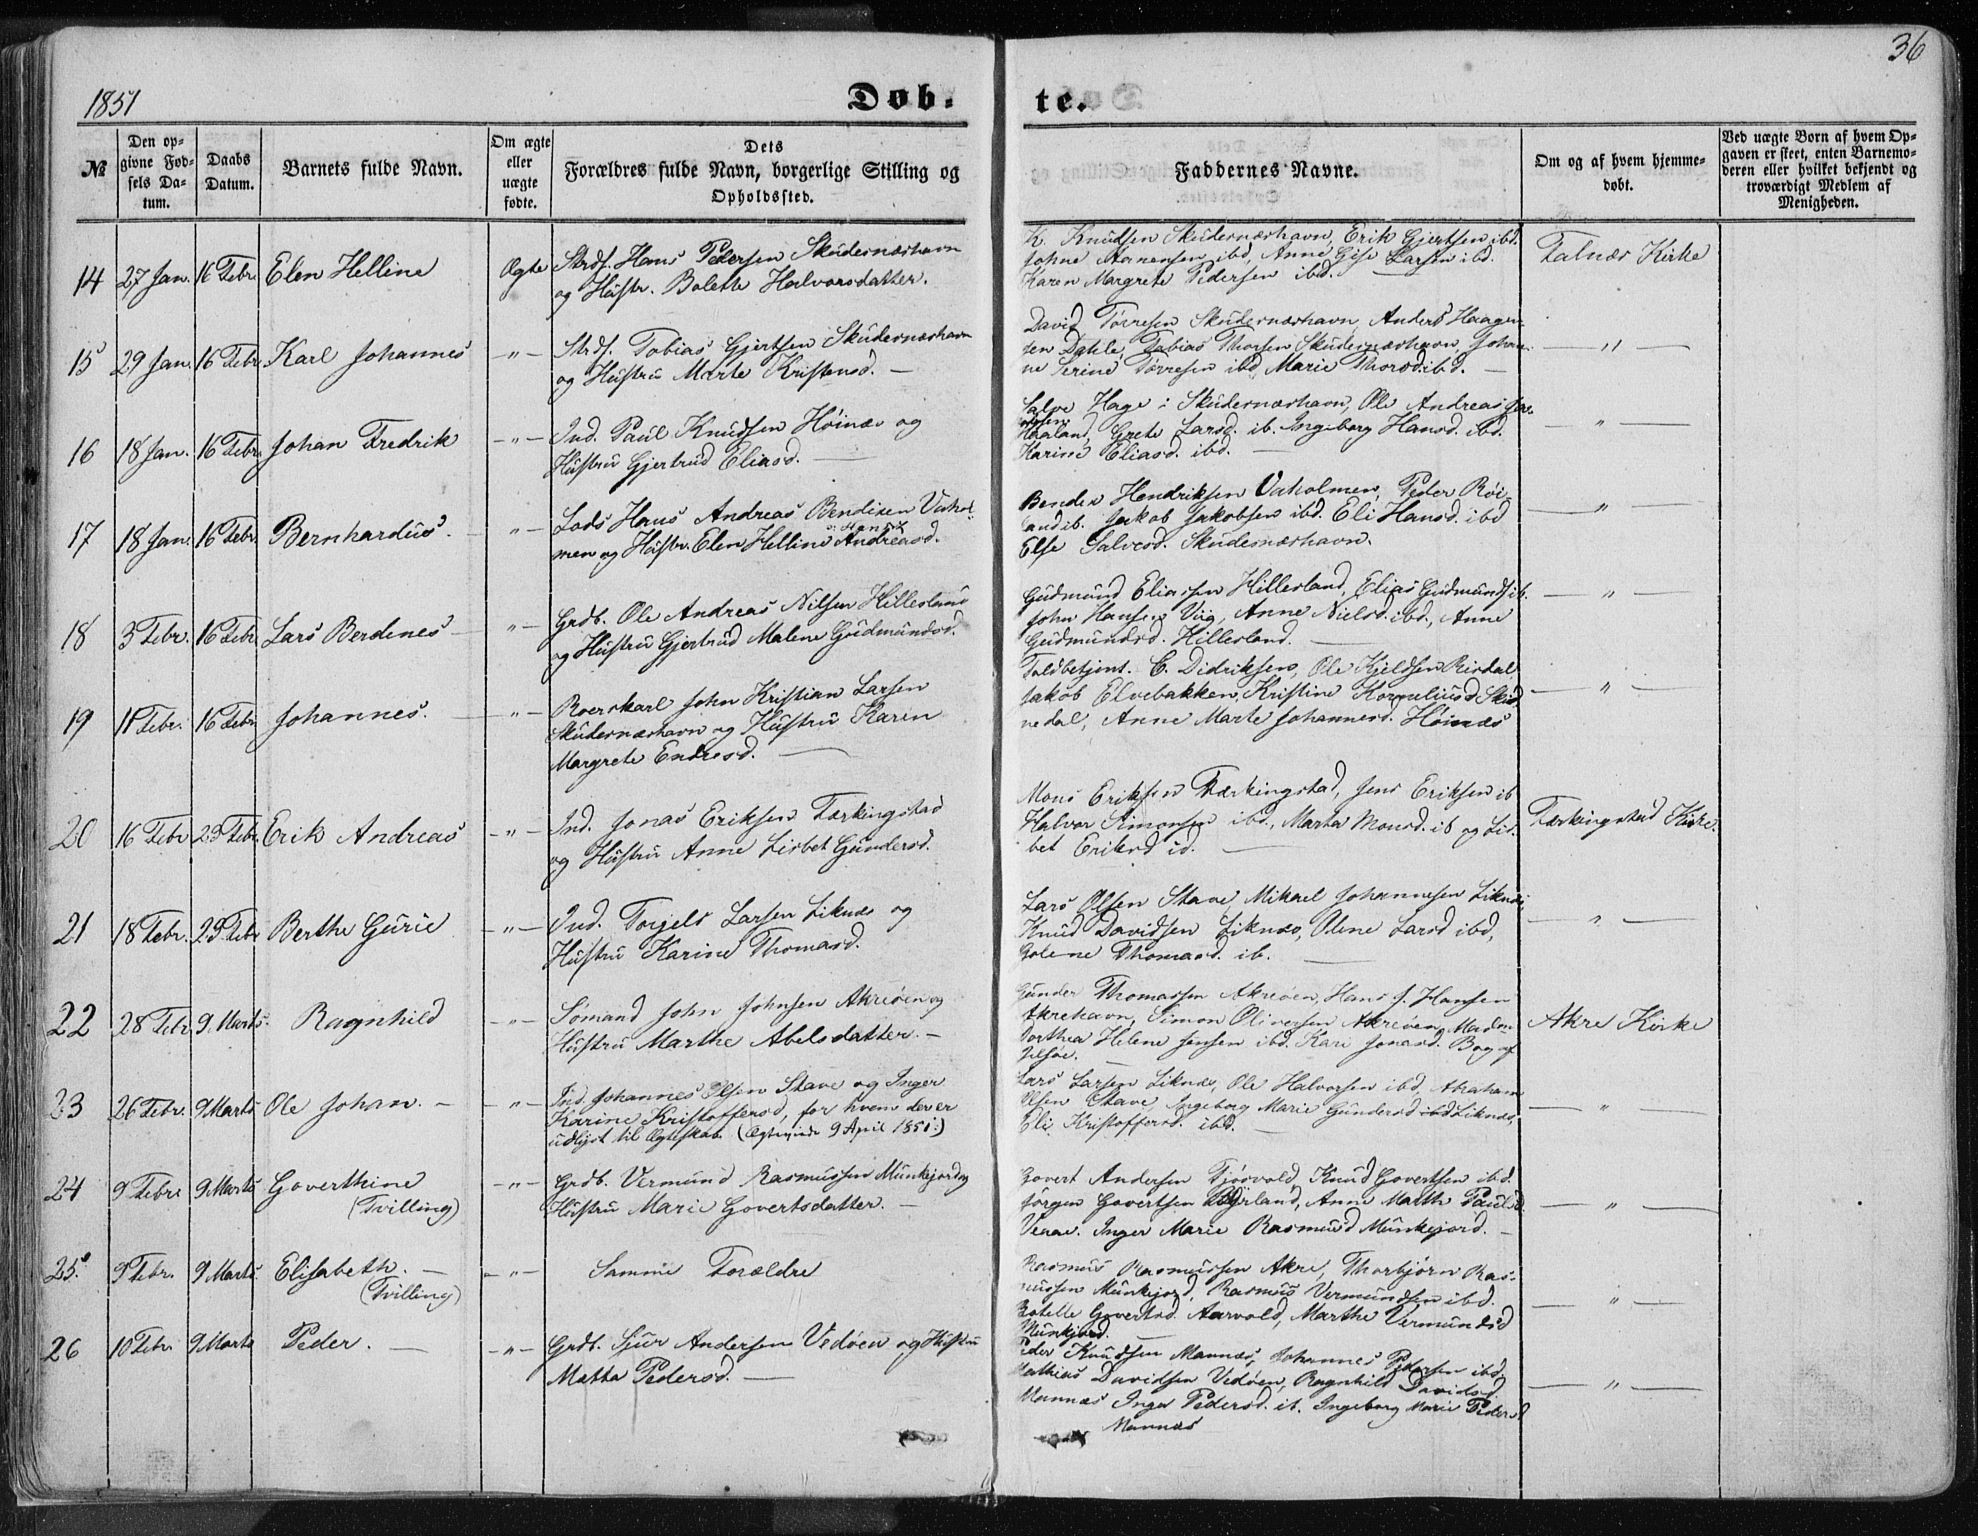 36
1851
Døb-
te.
№
Den op-
givne Fød-
sels Da-
tum.
Daabs
Datum.
Barnets fulde Navn.
Om ægte
eller
uægte
fødte.
Dets
Forældres fulde Navn, borgerlige Stilling og
Opholdssted.
Faddernes Navne.
Om og af hvem hjemme-
døbt.
Ved uægte Børn af hvem Op-
gaven er skeet, enten Barnemo-
deren eller hvilket bekjendt og
troværdigt Medlem af
Menigheden.
14 27 Jan. 16 Febr. Elen Helline Ægte Strds. Hans Pedersen Skudernæshavn
og Hustr. Bolette Halvorsdatter.
K. Knudsen Skudernæshavn, Erik Gjertsen ibd.
Johne Aanensen ibd, Anne Gise Larsen ibd.
Karen Margrete Pedersen ibd.
Falnæs Kirke
15 29 Jan. 16 Febr. Karl Johannes -"- Strds. Tobias Gjertsen Skudernæshavn
og Hustru Marte Kristensd.
David Tørresen Skudernæshavn, Anders Haagen
sen Dahle, Tobias Thorsen Skudernæshavn, Johan
ne Serine Tørresen ibd, Marie Thorsd. ibd.
-"-
16 18 Jan. 16 Febr. Johan Fredrik -"- Ind. Paul Knudsen Høinæs og
Hustru Gjertrud Eliasd.
Salve Hage i Skudernæshavn, Ole Andreas
Haaland, Grete Larsd. ib. Ingeborg Hansd. ibd.
Karine Eliasd. ibd.
-"-
17 18 Jan. 16 Febr. Bernhardus. -"- Lods Hans Andreas Bendixen Vahol-
men og Hustr. Elen Helline Andreasd.
Hans
Bendix Hendriksen Vaholmen, Peder Røi-
and ib. Jakob Jakobsen ibd. Eli Hansd. ibd
Else Salvesd. Skudernæshavn.
-"-
18 3 Febr. 16 Febr. Lars Berdines -"- Grdb. Ole Andreas Nilsen Hillesland
og Hustru Gjertrud Malene Gudmundsd.
Gudmund Eliassen Hillesland, Elias Gudmunds. ib.
John Hansen Viig, Anne Nielsd. ibd., Anne
Gudmundsd. Hillesland.
-"-
19 11 Febr. 16 Febr. Johannes. -"- Roerskarl John Kristian Larsen
Skudernæshavn og Hustru Karin
Margrete Endresd.
Toldbetjent. C. Didriksen, Ole Kjeldsen Risdal
Jakob Elvebakken, Kristine Korneliusd. Skud
nedal, Anne Marte Johannesd. Høinæs
-"-
20 16 Febr 23 Febr. Erik Andreas -"- Ind. Jonas Eriksen Færkingstad
og Hustru Anne Lisbet Gundersd.
Mons Eriksen Færkingstad, Jens Eriksen ib
Halvor Simonsen ibd., Marta Monsd. ib og Lis-
bet Eriksd id.
Færkingstad Kirke.
21 18 Febr. 23 Febr Berthe Gurie -"- Ind. Torjels Larsen Liknæs og
Hustru Karine Thomasd.
Lars Olsen Stave, Mikael Johannesen Liknæs,
Knud Davidsen Liknæs, Olene Larsd ibd,
Golene Thomasd. ib.
-"-
22 28 Febr 9. Marts. Ragnhild -"- Sømand John Johnsen Akreøen og
Hustru Marthe Abelsdatter.
Gunder Thomassen Akreøen, Hans J. Hansen
Akrehavn, Simon Oliversen Akreøen, Madm
Dorthea Helene Jensen ibd. Kari Jonasd.
Akre Kirke
23 26 Febr. 9 Marts Ole Johan. -"- Ind. Johannes Olsen Stave og Inger
Karine Kristoffersd, for hvem der er
udlyst til Ægteskab. (Ægteviede 9 April 1851.)
Lars Larsen Liknæs, Ole Halvorsen ibd, Abraham
Olsen Stave, Ingeborg Marie Gundersd ibd Liknæs,
Eli Kristoffersd. ibd.
-"-
24 9 Febr. 9 Marts Goverthine
(Tvilling)
-"- Grdb. Vermund Rasmussen Munkejord og
Hustru Marie Govertsdatter.
Govert Andersen Tjøsvold, Knud Govertsen ibd.
Jørgen Govertsen Døyrland, Anne Marthe Paulsd.
Veaae. Inger Marie Rasmusd Munkejord.
-"-
25. 9 Febr. 9 Marts. Elisabeth.
(Tvilling)
-"- Samme Forældre
Rasmus Rasmussen Akre, Thorbjørn Ras-
mussen Munkejord, Rasmus Vermundsen ibd.
Botelle Govertsd. Aarvold, Marthe Vermundsd
Munkejord.
-"-
26 10 Febr. 9 Marts Peder. -"- Grdb. Sjur Andersen Vedøen og Hustru
Matha Pedersd.
Peder Knudsen Mannæs, Johannes Pedersen ibd,
Mathias Davidsen Vedøen, Ragnhild Davidsd.
Mannæs Inger Pedersd. ib. Ingeborg Marie Pedersd
Mannæs
-"-